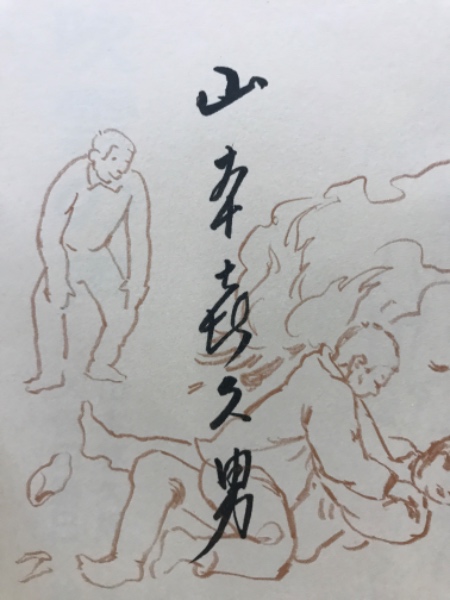 山本喜久男